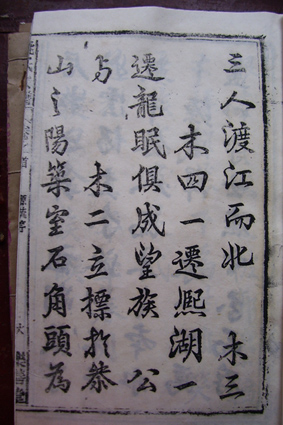 三人渡江而北　木三
木四一遷熙湖一
遷龍眠俱成望族　公
与　木二立標於恭
山之陽築室石角頭為